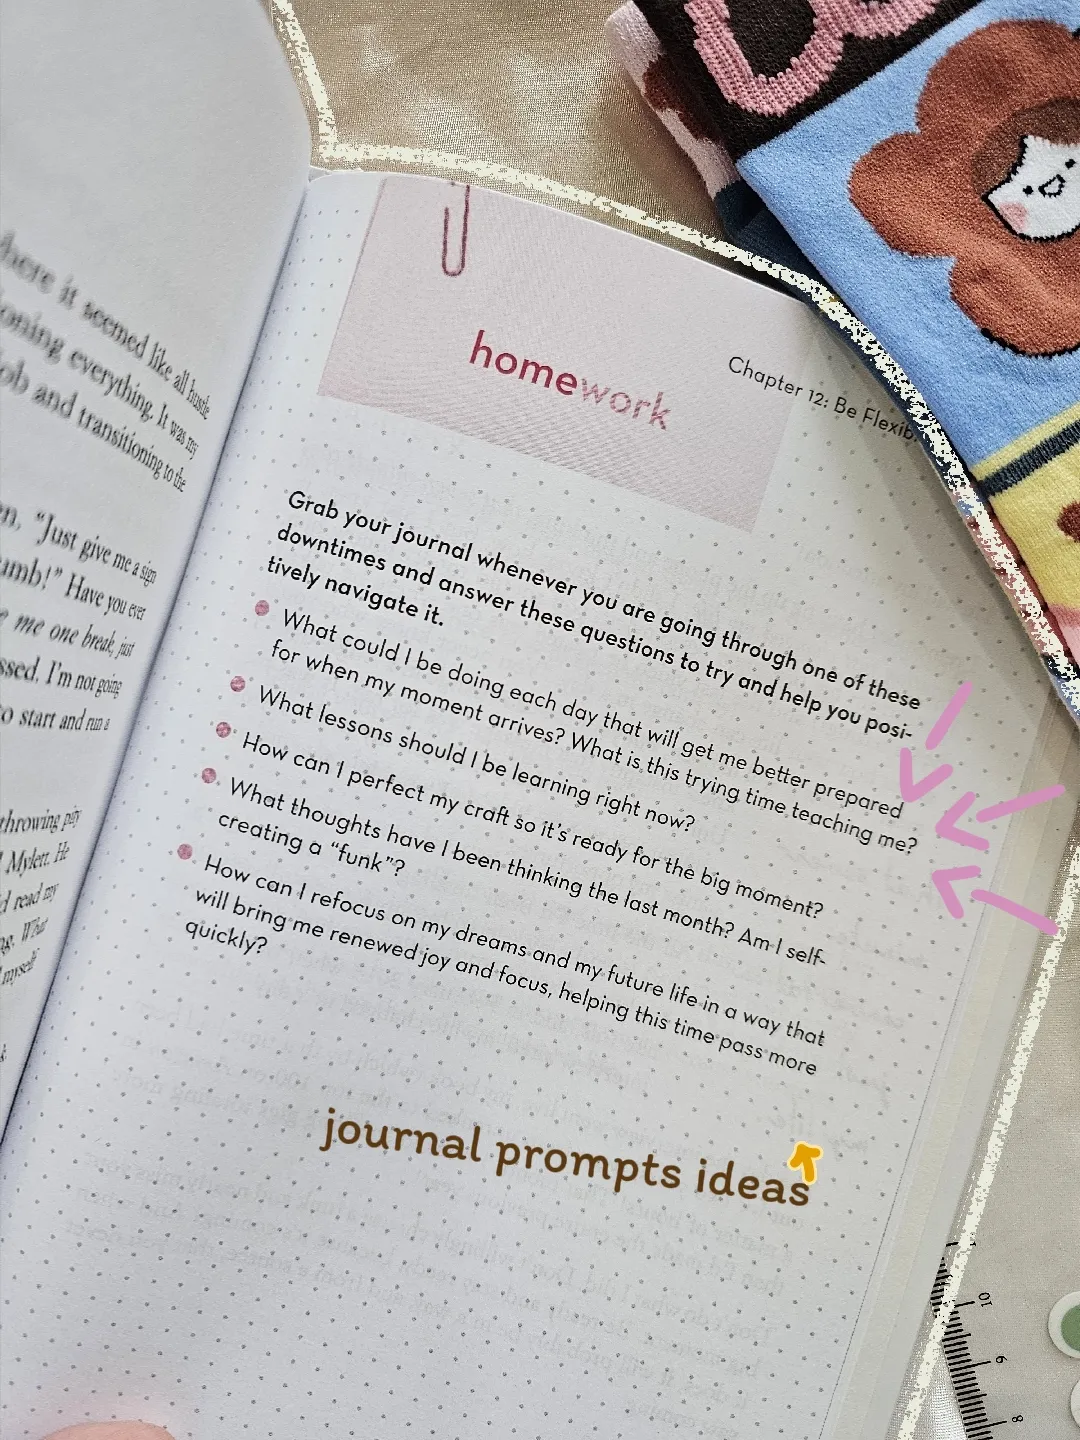 here it seemed like all hustle
oning everything. It was my
ob and transitioning to the
en, "Just give me a sign
umb!" Have you ever
me one break, just
ssed. I'm not going
to start and run a
throwing pity
Mylett. He
d read my
ng. What
myself
homework
Chapter 12: Be Flexib
Grab your journal whenever you are going through one of these
downtimes and answer these questions to try and help you posi-
tively navigate it.
What could I be doing each day that will get me better prepared
for when my moment arrives? What is this trying time teaching me?
What lessons should I be learning right now?
How can I perfect my craft so it's ready for the big moment?
What thoughts have I been thinking the last month? Am I self-
creating a "funk"?
How can I refocus on my dreams and my future life in a way that
will bring me renewed joy and focus, helping this time pass more
quickly?
journal prompts ideas
10
9
8